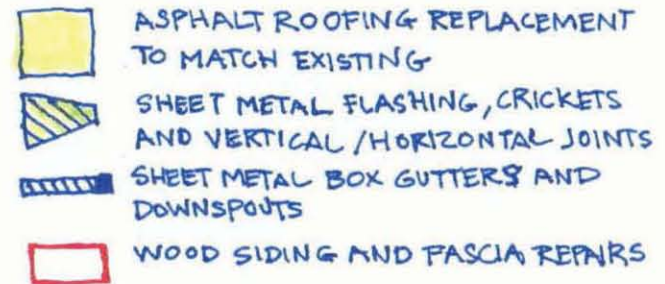 ASPHALT ROOFING REPLACEMENT
TO MATCH EXISTING
SHEET METAL FLASHING, CRICKETS
AND VERTICAL / HORIZONTAL JOINTS
SHEET METAL BOX GUTTERS AND
DOWNSPOUTS
WOOD SIDING AND FASCIA REPAIRS